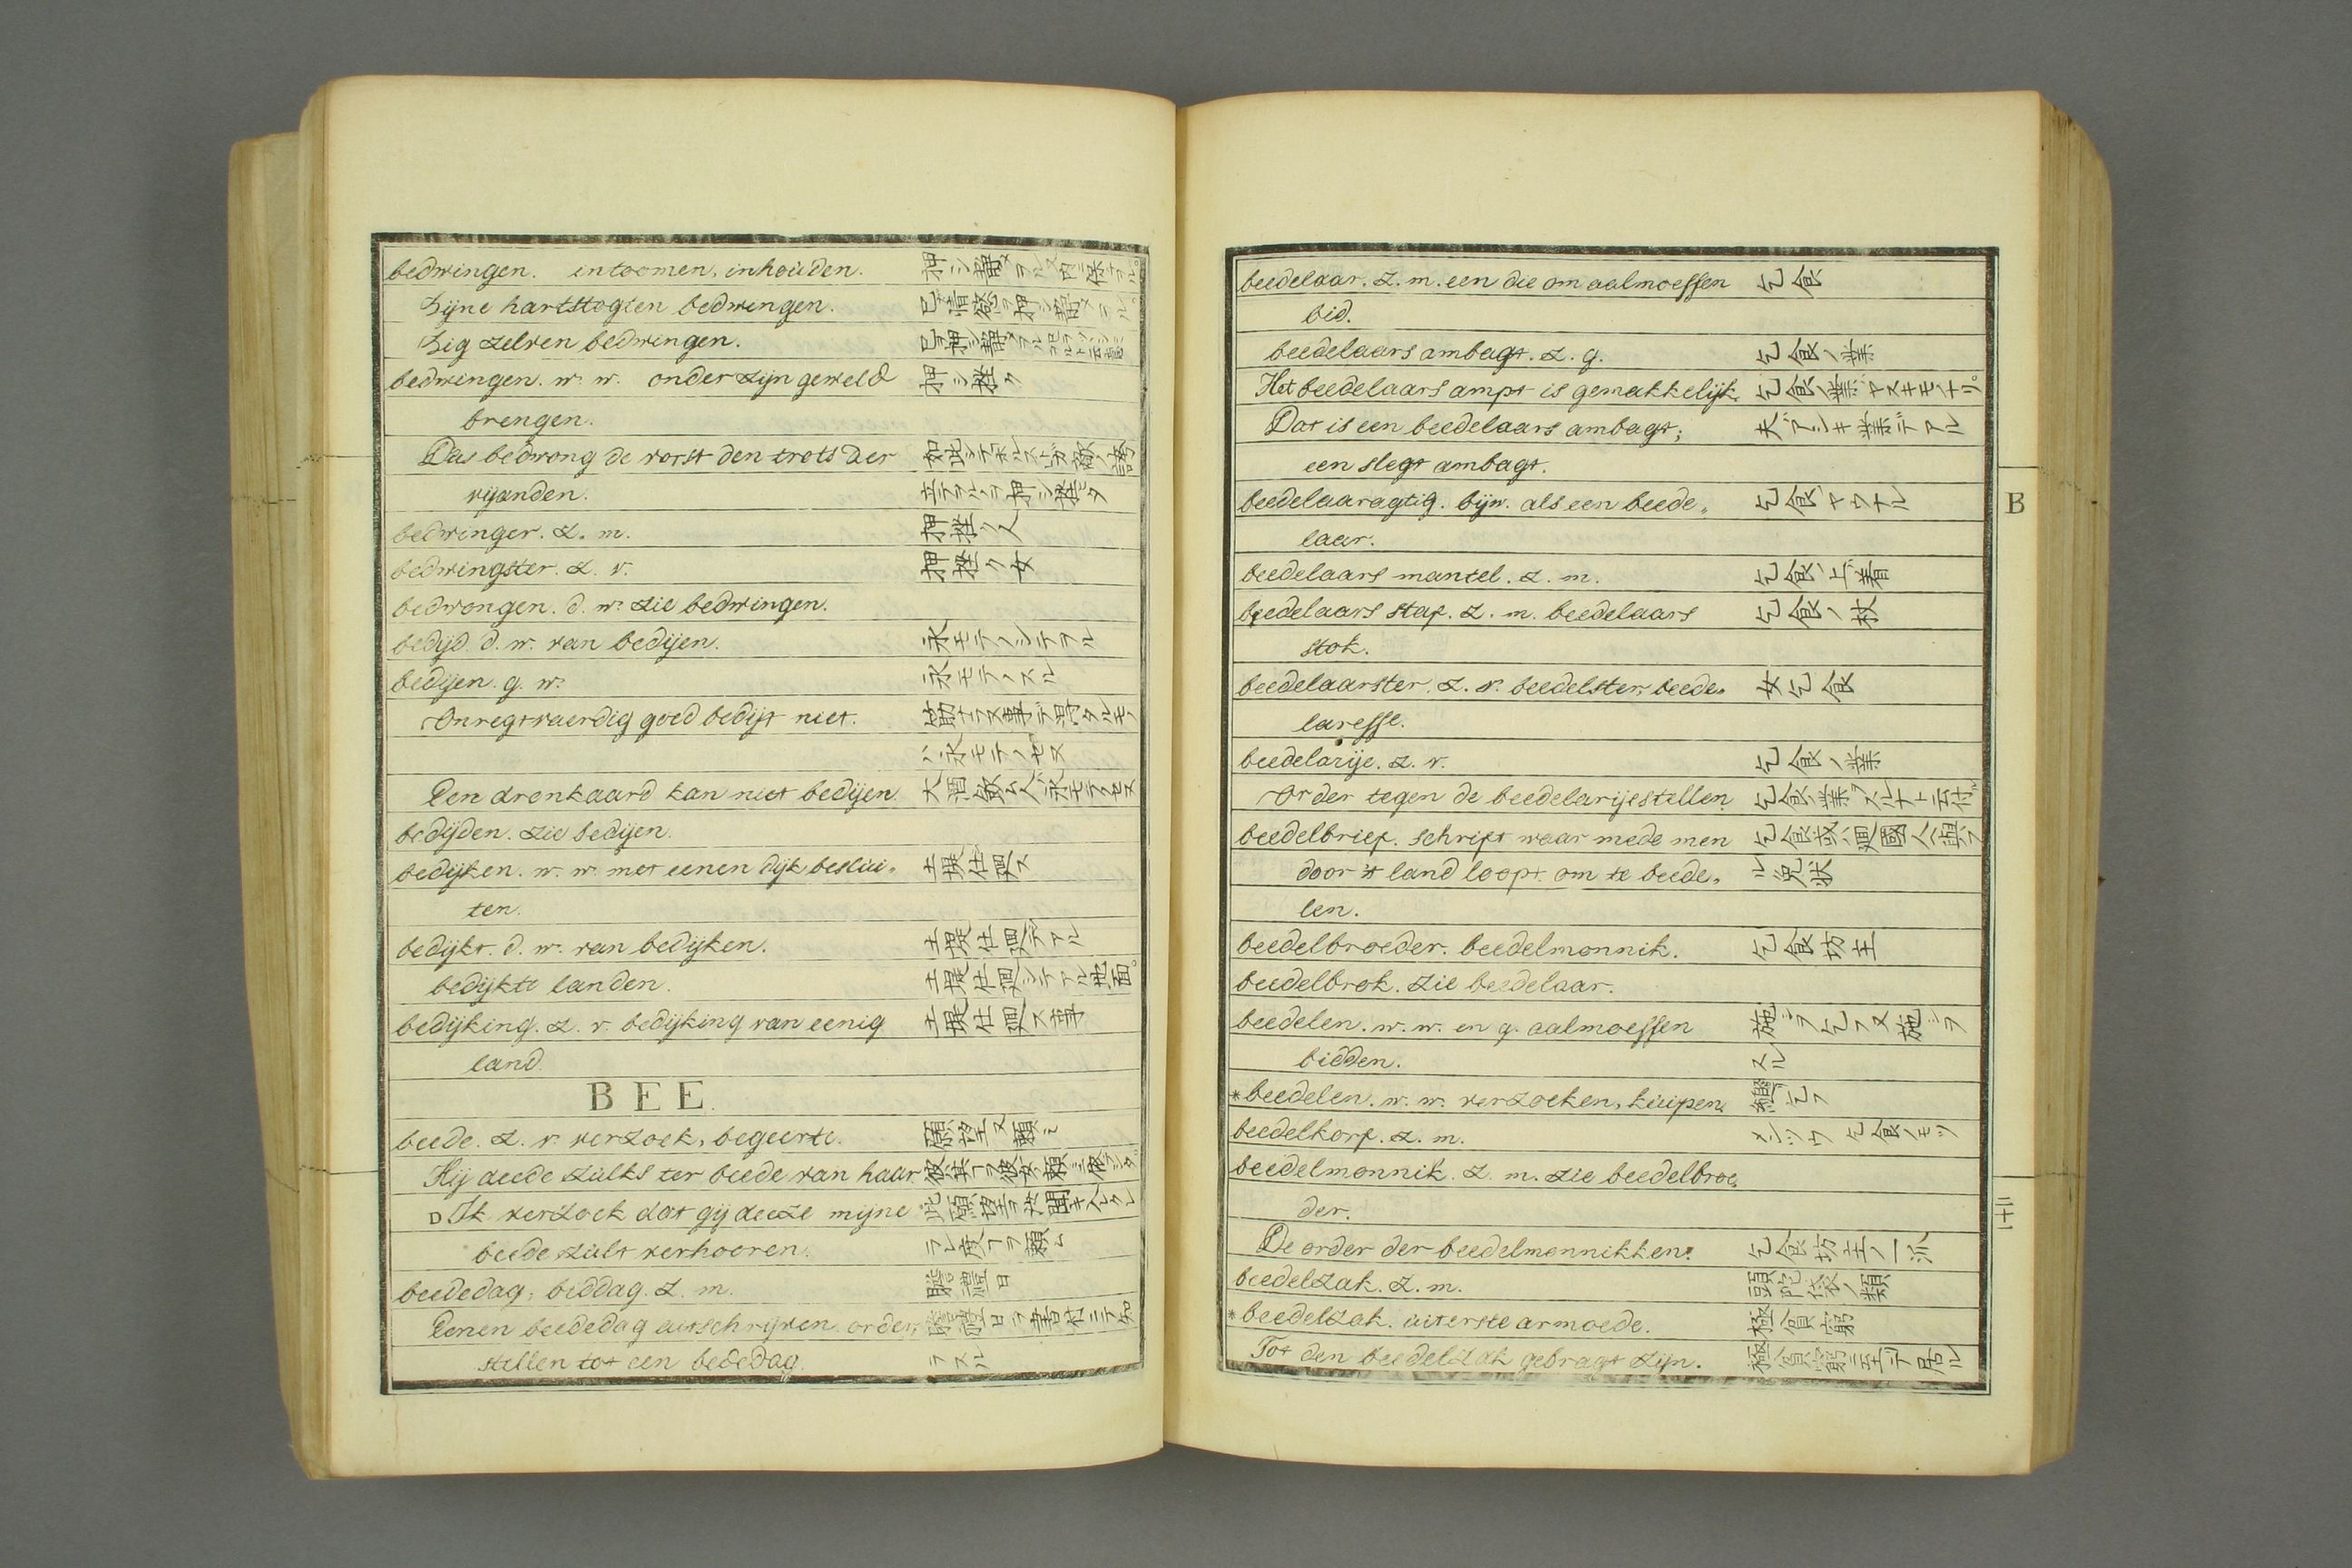 bedwingen. intoomen, inhouden. 押シ静メテルヌ内ニ保ナル。
Zijne hartstogten bedwingen. 已情慾ヲ押シ静メテル。
Zig zelven bedwingen. 已ヲ押シ静メテル
bedwingen. w. w. onder zijn geweld 押シ挫ク
brengen.
Dus bedwong de vorst den trots der
vijanden. 立テヲ押シ挫タ
bedwinger. z. m. 押挫ク人
bedwingster. z. v. 押挫ク女
bedwongen. d. w. zie bedwingen.
bedijd. d. w. van bedijen. 永モテノシテアル
bedijen. g. w. 永モテノスル
Onregtvaerdig goed bedijt niet. 筋ナラヌ事デ得タルモノ
ハ永モテノセヌ
Een dronkaard kan niet bedijen. 大酒飲ム人ハ永モテノセヌ
bedijden. zie bedijen.
bedijken. w. w. met eenen dijk beslui„ 土堤仕廻ス
ten.
bedijkt. d. w. van bedijken. 土堤仕廻テアル
bedijkte landen. 土堤仕廻シテアル地面。
bedijking. z. v. bedijking van eenig 土堤仕廻ス事
land.
BEE.
beede. z. v. verzoek, begeerte. 願望又頼ミ
Hij deede zulks ter beede van haar.
D Ik verzoek dat gij deeze mijne 此願望ヲ聞キ入レクレ
beede zult verhooren. ラレ度フヲ頼ム
beededag, biddag. z. m. 膽禮日
Eenen beededag uitschrijven. order„
stellen tot een bededag. ラスル
beedelaar. z. m. een die om aalmoessen 乞食
bid.
beedelaars ambagt. z. g. 乞食ノ業
Het beedelaars ampt is gemakkelijk. 乞食ノ業ハヤスキモノナリ。
Dat is een beedelaars ambagt; 夫ハアシキ業デアル
een slegt ambagt.
beedelaaragtig. bijw. als een beede„ 乞食ヤウナル
laar.
beedelaars mantel. z. m. 乞食ノ上着
beedelaars staf. z. m. beedelaars 乞食ノ杖
stok.
beedelaarster. z. v. beedelster, beede„ 女乞食
laresse.
beedelarije. z. v. 乞食ノ業
Order tegen de beedelarije stellen. 乞食ノ業ヲスルナト云付ル
beedelbrief. schrift waar mede men 乞食或ハ廻國人ニ與フ
door 't land loopt om te beede„ ル免状
len.
beedelbroeder. beedelmonnik. 乞食坊主
beedelbrok. zie beedelaar.
beedelen. w. w. en g. aalmoessen 施シヲ乞フ又施シヲ
bidden. スル
*beedelen. w. w. verzoeken, kuipen. 乞フ
beedelkorf. z. m. メンツウ 乞食ノモツ
beedelmonnik. z. m. zie beedelbroe„
der.
De order der beedelmonnikken. 乞食坊主ノ一派
beedelzak. z. m. 頭陀袋ノ類
*beedelzak. uiterste armoede. 極貧窮
Tot den beedelzak gebragt zijn. 極貧窮ニ至テ居ル
B
二十一